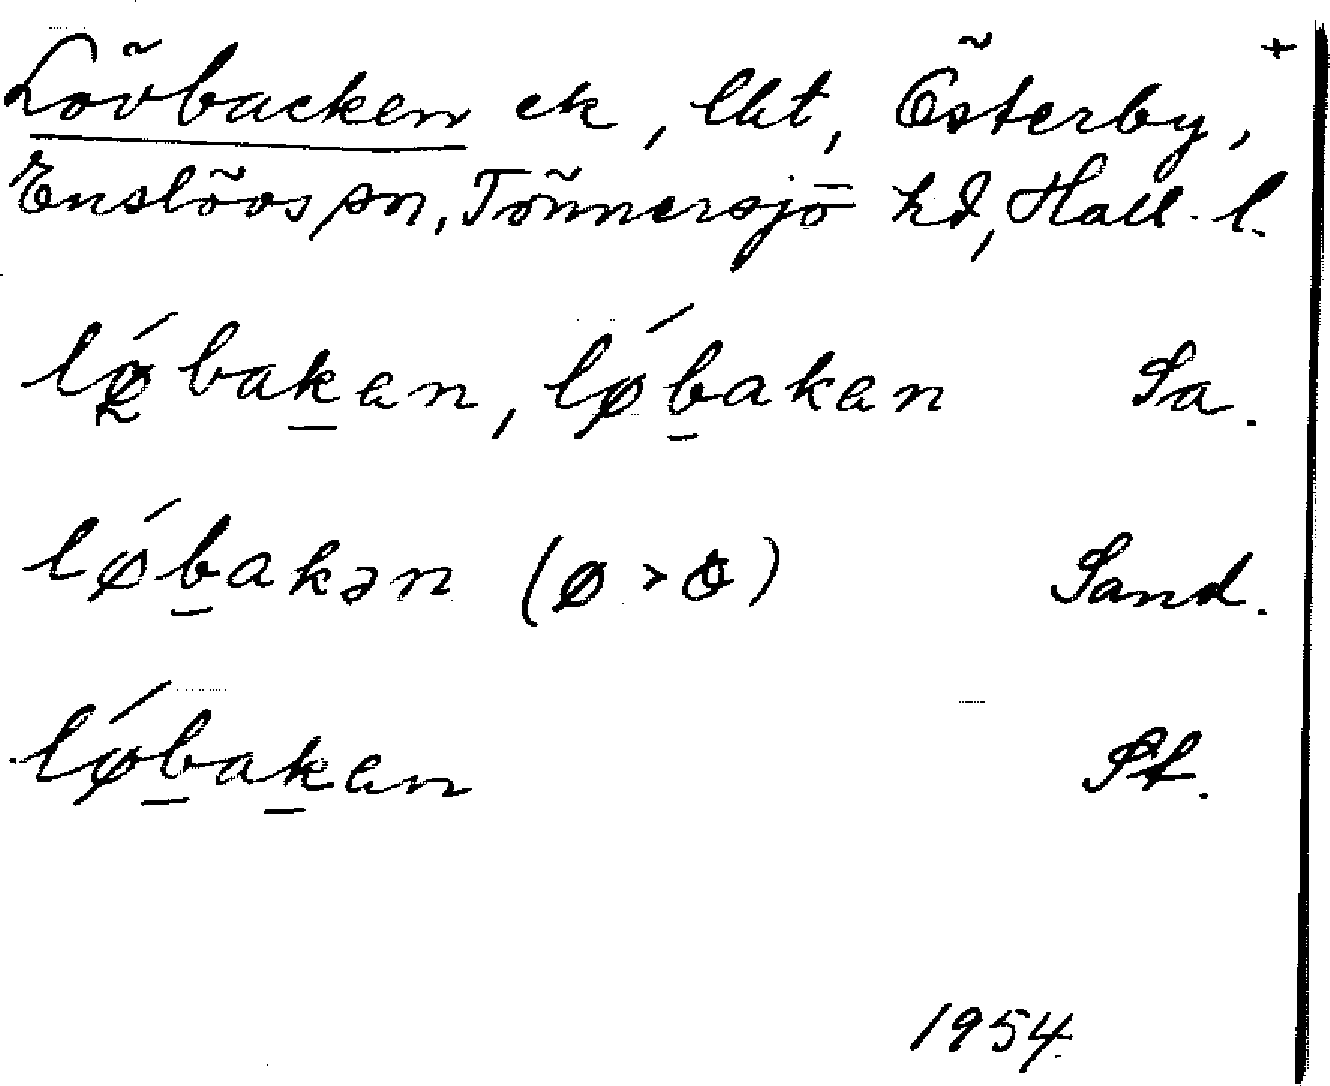 Lövbacken ek, lht, Österby, +
Enslövs sn, Tönnersjö hd, Hall. l.
lǿbak̲an, lǿb̲akan Sa.
lǿb̲akən (ø > ö) Sand.
lǿb̲ak̲an St.
1954